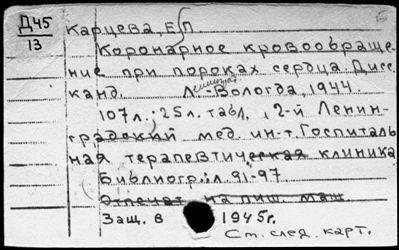 Д45
13
Карцева, Е.П.
Коронарное кровообраще-
ние при пороках сердца. Дисс.
канд. Л.-Вологда, 1944.
107л.; 25л. табл., 2-й Ленин-
градский мед. ин-т. Госпиталь
ная терапевтическая клиника
Библиогр.: л. 91-97
Отпечат. на пиш. маш.
Защ. в 1945г.
См. след. карт.